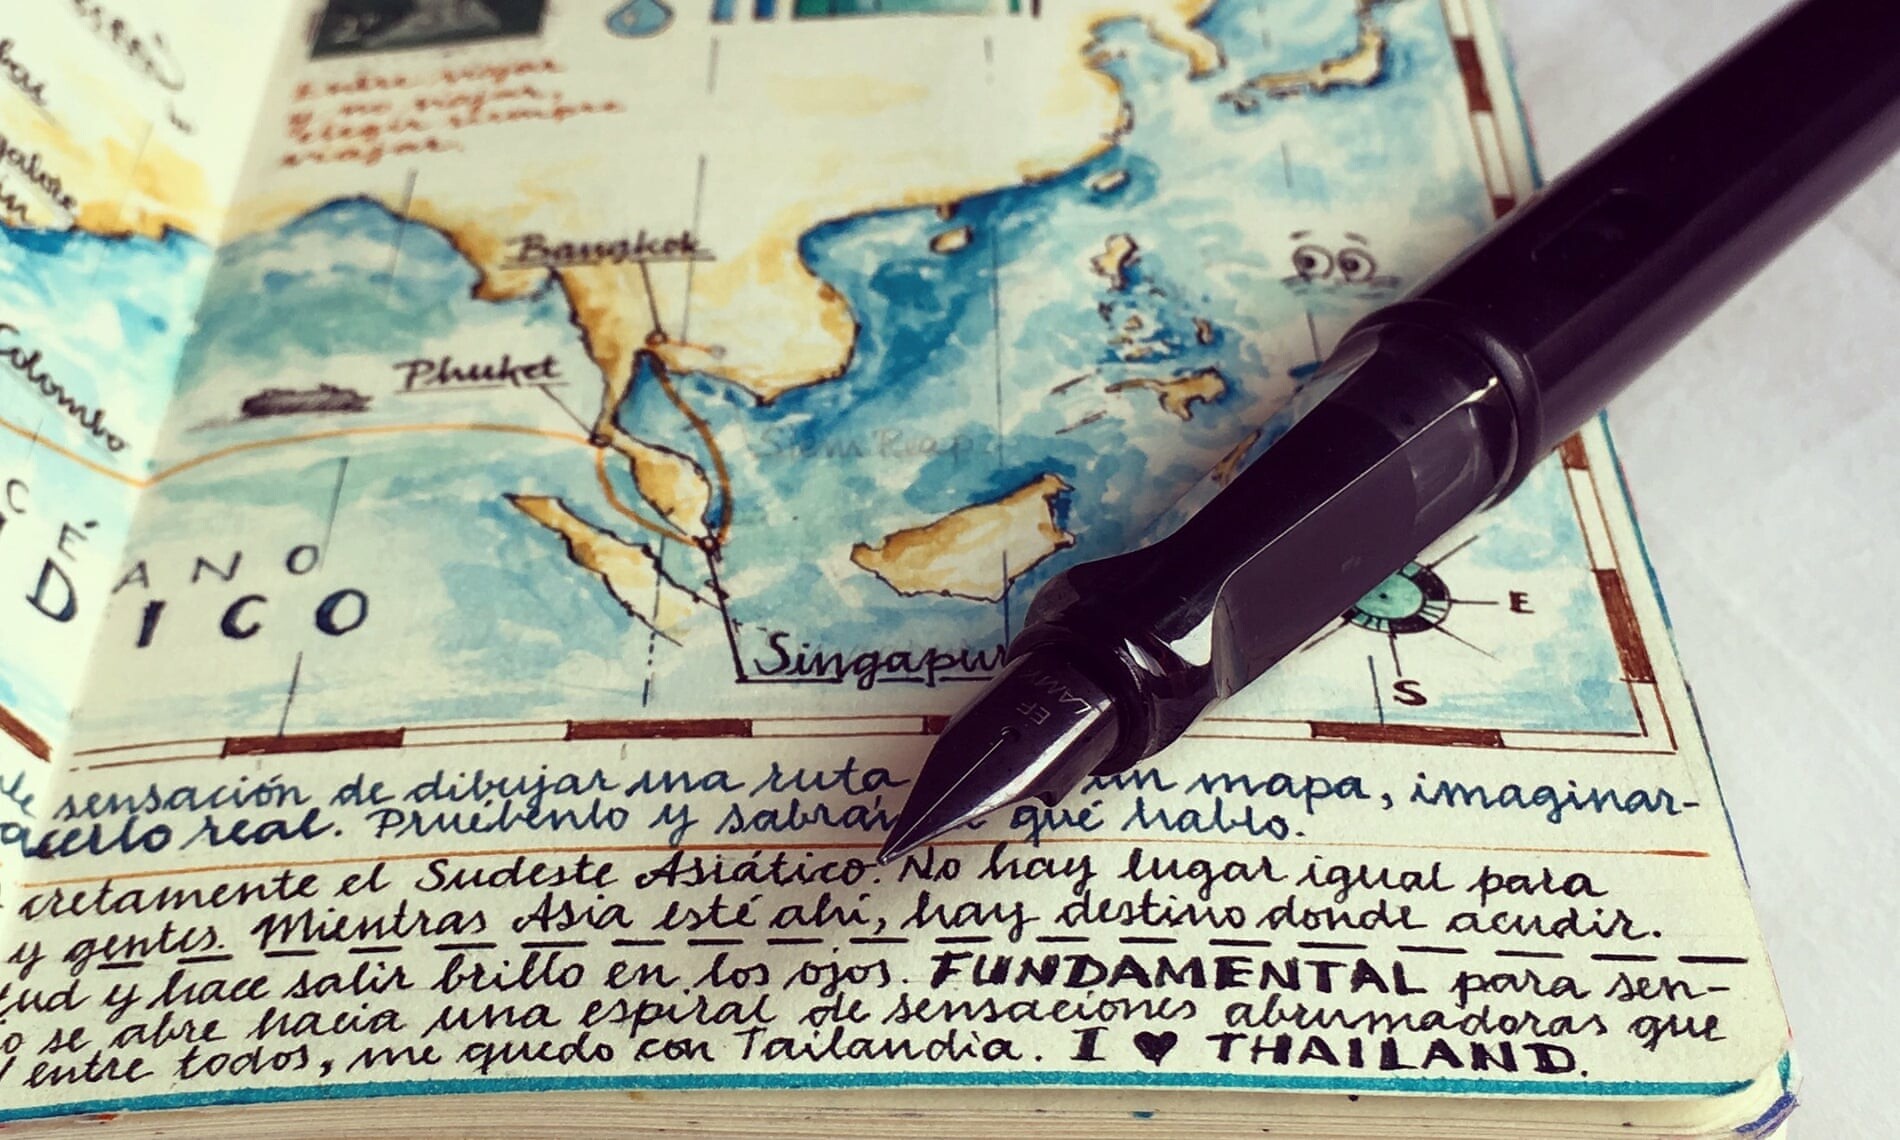 2º
Entre viajar
y no viajar,
elegir siempre
viajar.
Bangkok
Phuket
Colombo
Siem Reap
OCÉANO
ÍNDICO
Singapur
E
S
LAMY
EF
sensación de dibujar una ruta un mapa, imaginar-
hacerlo real. Pruébenlo y sabrán qué hablo.
cretamente el Sudeste Asiático. No hay lugar igual para
y gentes. Mientras Asia esté ahí, hay destino donde acudir.
tud y hace salir brillo en los ojos. FUNDAMENTAL para sen-
o se abre hacia una espiral de sensaciones abrumadoras que
entre todos, me quedo con Tailandia. I ♥ THAILAND.